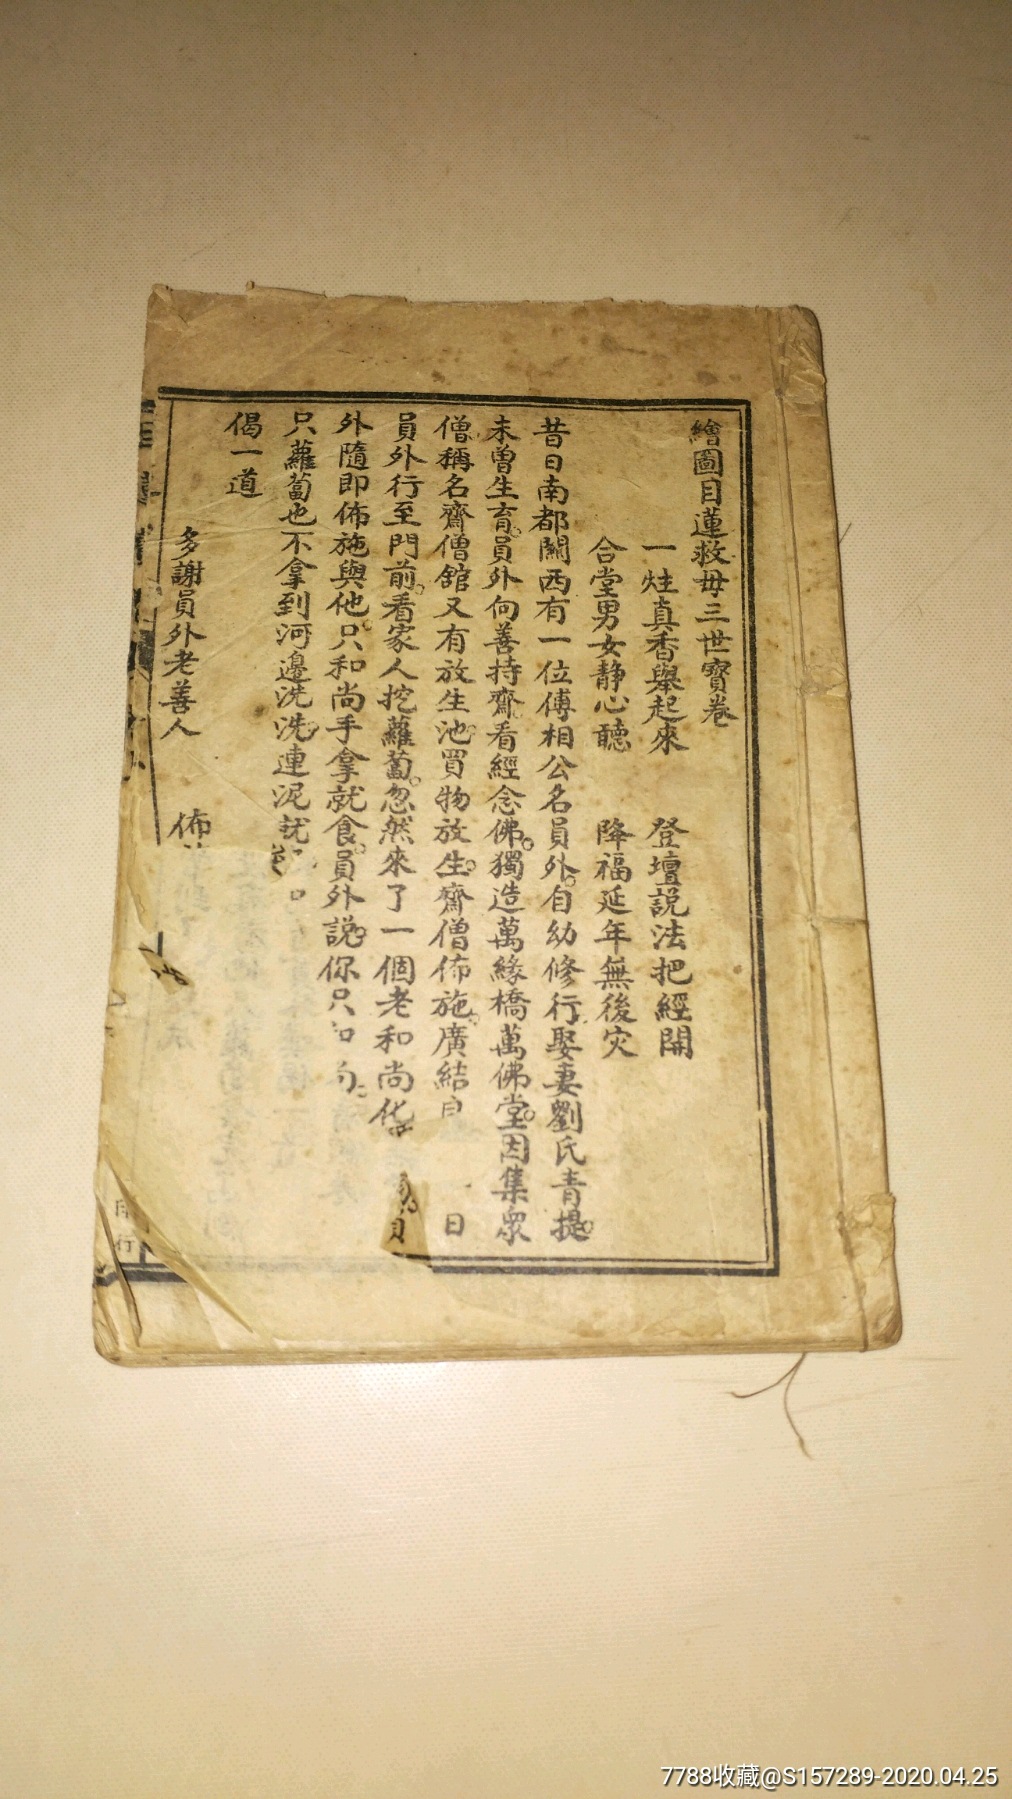 繪圖目蓮救母三世寶卷
一炷真香舉起來 登壇説法把經開
合堂男女靜心聽 降福延年無後灾
昔日南都關西有一位傅相公名員外。自幼修行娶妻劉氏青提。
未曾生育。員外向善持齋。看經念佛。獨造萬緣橋萬佛堂。因集衆
僧稱名齋僧舘又有放生池。買物放生。齋僧佈施。廣結 一日
員外行至門前。看家人挖蘿蔔。忽然來了一個老和尚化
外隨即佈施與他。只和尚手拿就食。員外説。你只和尚
只蘿蔔也不拿到河邊洗洗。連泥就
偈一道
多謝員外老善人 佈
印行
7788收藏@S157289-2020.04.25